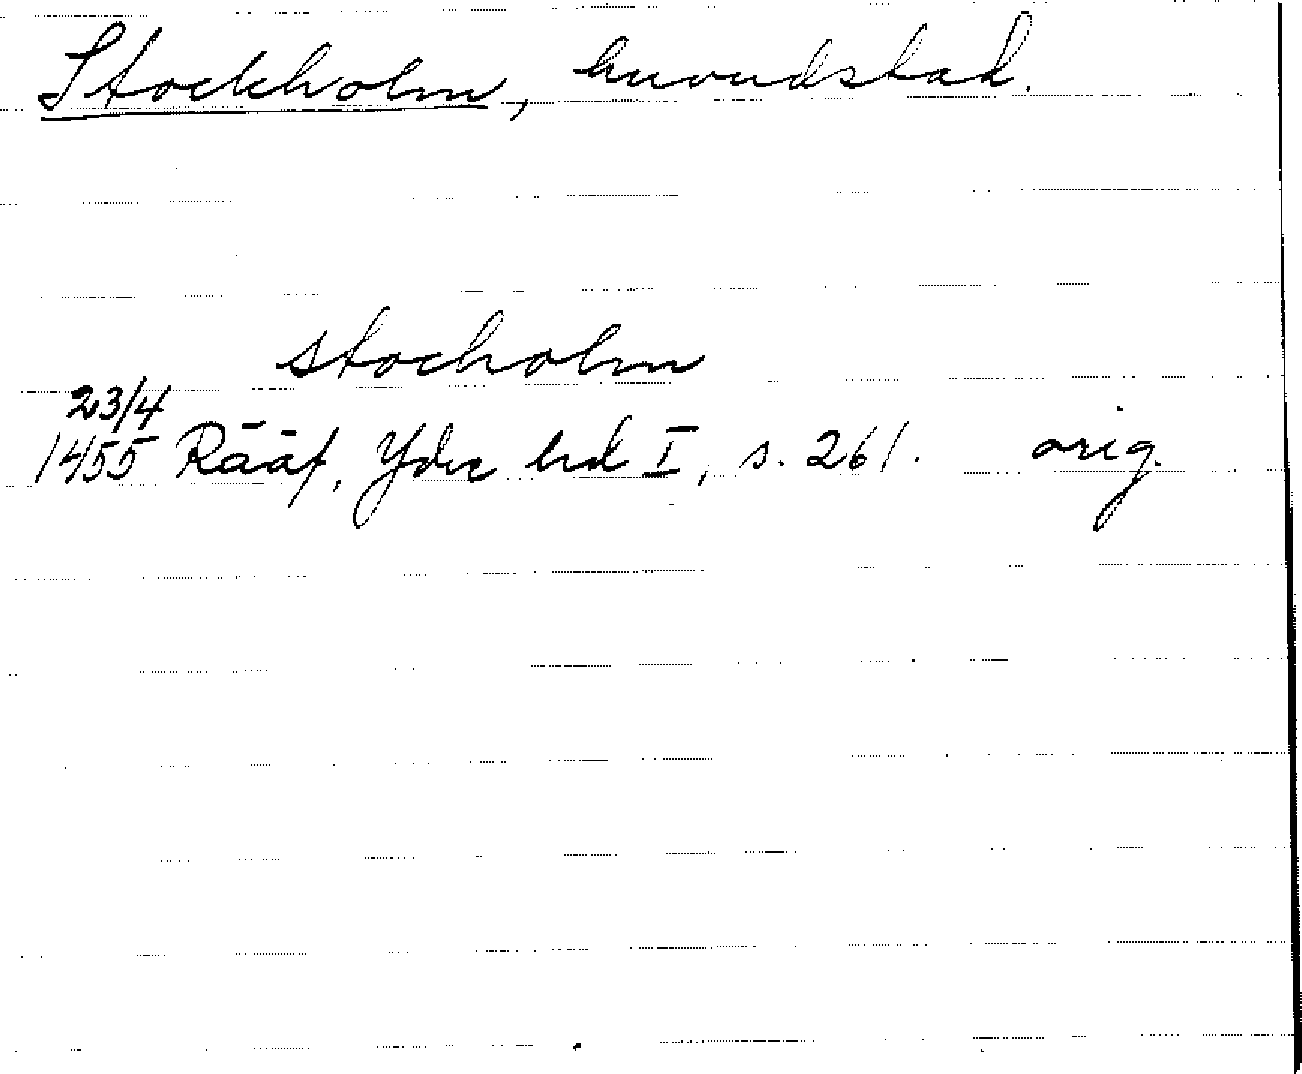 Stockholm, huvudstad.
stocholm
23/4
1455 Rääf, Ydre hrd I, s. 261. orig.